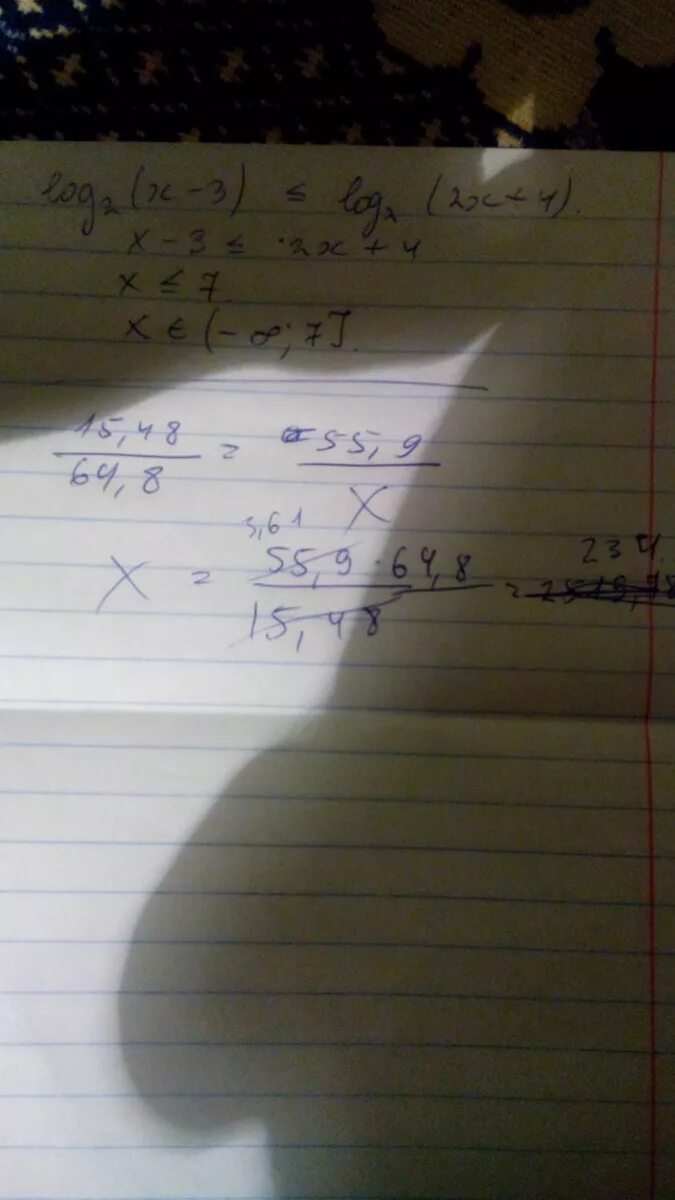 log₂(x - 3) ≤ log₂ (2x + 4).
x - 3 ≤ 2x + 4
x ≤ 7
x ∈ (-∞; 7].
15,48/64,8 = 55,9/X
3,61
X = 55,9 · 64,8/15,48 = 234.